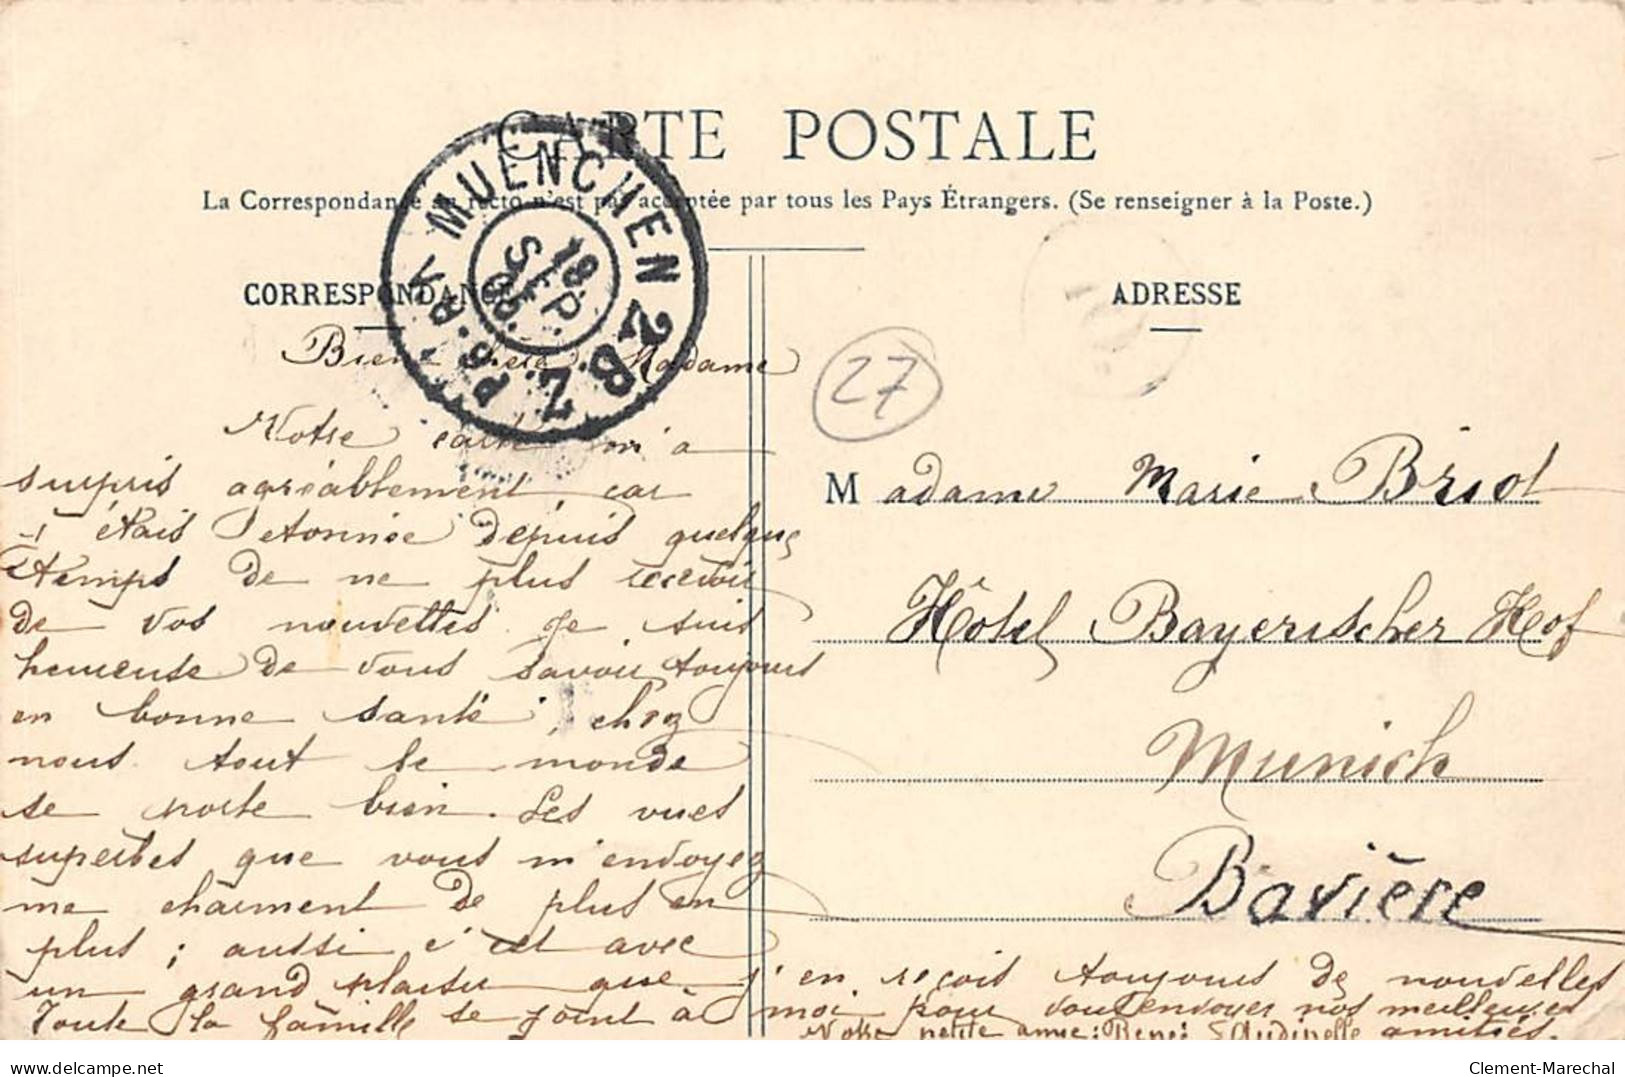 CARTE POSTALE
La Correspondance au recto n'est pas acceptée par tous les Pays Étrangers. (Se renseigner à la Poste.)
MUENCHEN 2 B.Z.
18
SEP.
CORRESPONDANCE
Bien chère Madame
Votre carte m'a
surpris agréablement car
j'étais étonnée depuis quelque
temps de ne plus recevoir
de vos nouvelles. Je suis
heureuse de vous savoir toujours
en bonne santé, chez
nous tout le monde
se porte bien. Les vues
superbes que vous m'envoyez
me charment de plus en
plus ; aussi c'est avec
un grand plaisir que j'en reçois toujours de nouvelles
Toute la famille se joint à moi pour vous envoyer nos meilleures
amitiés.
Votre petite amie : René
ADRESSE
27
Madame Marie Briot
Hôtel Bayerischer Hof
Munich
Bavière
delcampe.net
Clement-Marechal